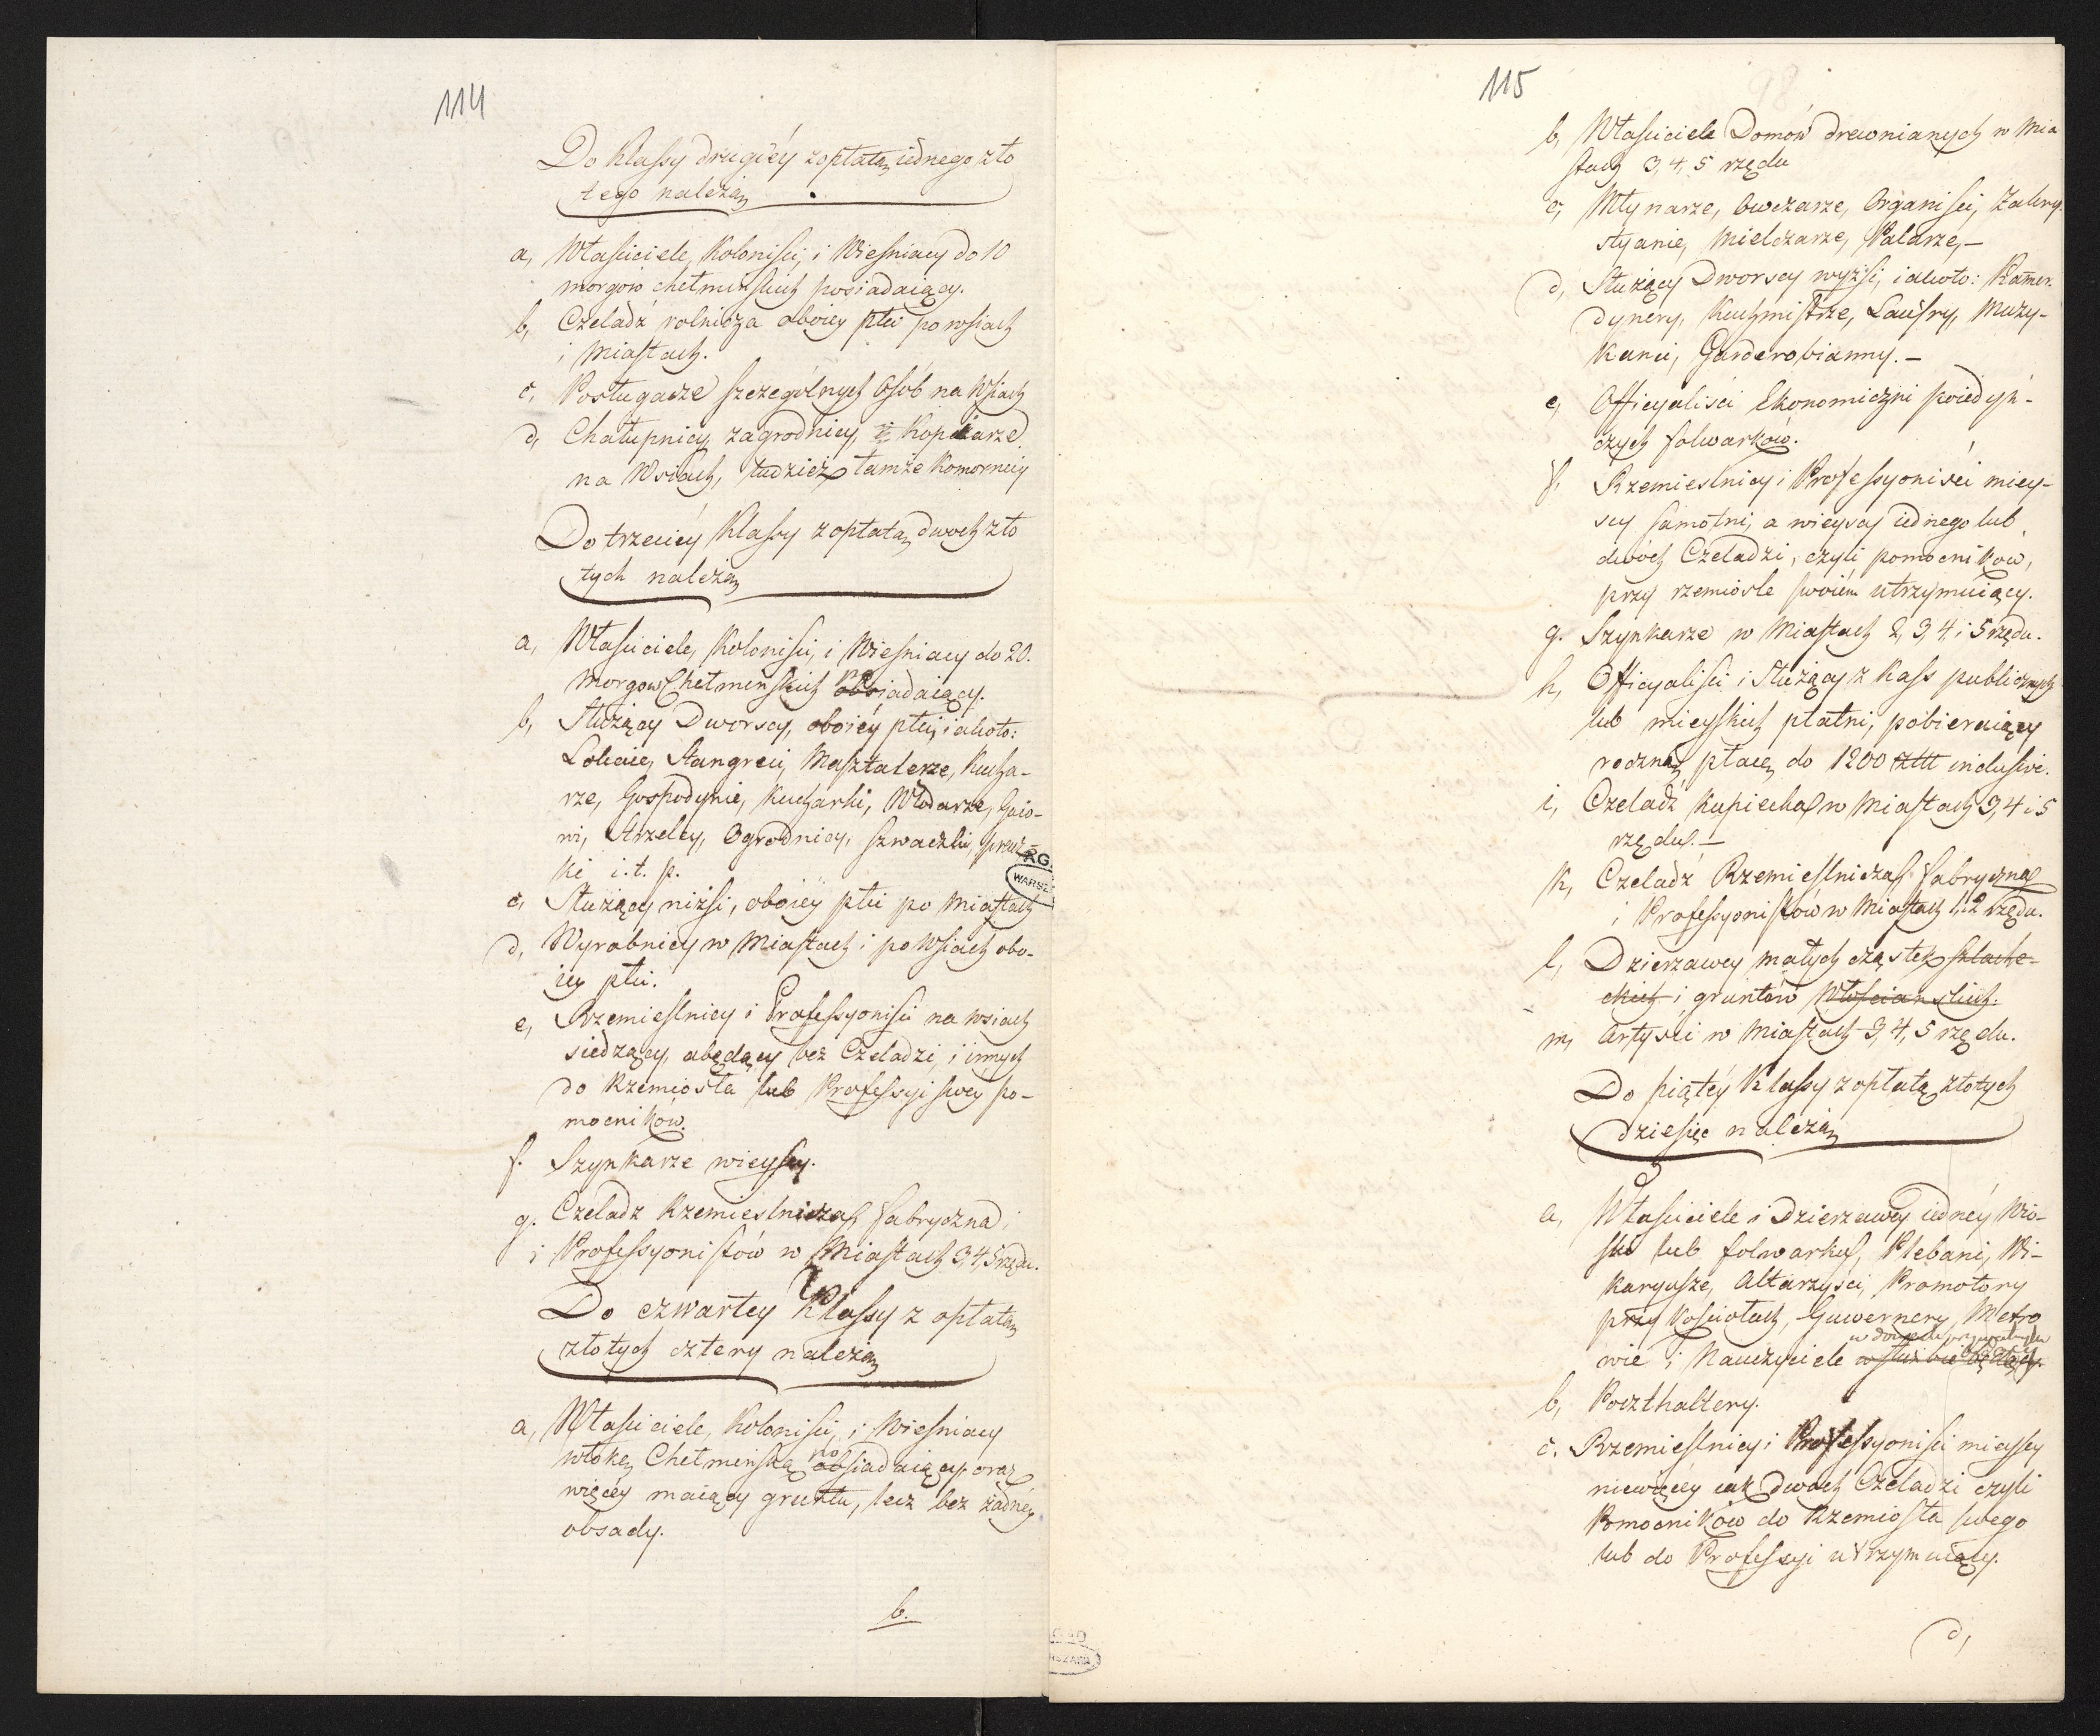 114
Do Klassy drugiey z opłatą iednego zło
tego należą
a, Własciciele, Kolonisci, i Wiesniacy do 10
morgów chełminskich posiadaiący.
b, Czeladź rolnicza oboiey płci po wsiach
i miastach.
c, Posługacze szczególnych Osób na Wsiach
d, Chałupnicy, zagrodnicy, Kopiarze
na Wsiach, tudzież tamże Komornicy
Do trzeciey Klassy z opłatą dwóch zło
tych należą
a, Własciciele, Kolonisci, i Wiesniacy do 20.
morgow Chełmińskich posiadaiący.
b, Służący Dworscy, oboiey płci, iakoto:
Lokaie, Stangreci, Masztalerze, Kucha-
rze, Gospodynie, Kucharki, Włodarze, Gaio-
wi, Strzelcy, Ogrodnicy, szwaczki, pracz-
ki i. t. p.
c, Służący niżsi, oboiey płci po Miastach
d, Wyrobnicy w Miastach i po Wsiach obo-
iey płci.
e, Rzemieslnicy i Professyonisci na wsiach
siedzący, a będący bez Czeladzi, i innych
do Rzemiosła lub Professyi swey po-
mocników.
f. Szynkarze wieyscy.
g. Czeladz Rzemieslnicza, fabryczna,
i Professyonistów w Miastach 3, 4, 5 rzędu.
Do czwartey Klassy z opłatą
złotych cztery należą
a, Własciciele, Kolonisci, i Wiesniacy
włokę Chełmińską posiadaiący, oraz
więcey maiący gruntu, lecz bez żadney
obsady.
b.
115
b, Własciciele Domów drewnianych w Mia
stach 3, 4, 5 rzędu
c, Młynarze, Owczarze, Organisci, Zakry-
styanie, Mielcarze, Palarze, -
d, Służący Dworscy wyżsi, iakoto: Kamer-
dynery, Kuchmistrze, Laufry, Muzy-
kanci, Garderobianny. -
e, Officyalisci Ekonomiczni poiedyń-
czych folwarków.
f, Rzemieslnicy i Professyonisci miey-
scy samotni, a wieyscy iednego lub
dwóch Czeladzi, czyli pomocników,
przy rzemiosle swoiem utrzymuiący.
g. Szynkarze w Miastach 2, 3, 4, i 5 rzędu.
h, Officyalisci i Służący z Kass publicznych
lub mieyskich płatni, pobieraiący
roczney płacy do 1200 inclusive.
i, Czeladź Kupiecka w Miastach 3, 4 i 5
rzędu. -
k, Czeladź Rzemieslnicza, fabryczna
i Professyonistów w Miastach 1, i 2 rzędu.
l, Dzierzawcy małych cząstek szlache-
ckich i gruntów Włosciańskich.
m, Artysci w Miastach 3, 4, 5 rzędu.
Do piątey Klassy z opłatą złotych
dziesięc należą
a, Własciciele i Dzierzawcy iedney Wio-
ski lub folwarku, Plebani, Wi-
karyusze, Altarzysci, Promotory
przy Kosciołach, Guwernery, Metro
wie i Nauczyciele w służbie będący.
b, Poczthaltery.
c. Rzemieslnicy i Professyonisci mieyscy
niewięcey iak dwoch Czeladzi czyli
Pomocników do Rzemiosła swego
lub do Professyi utrzymuiący.
d,